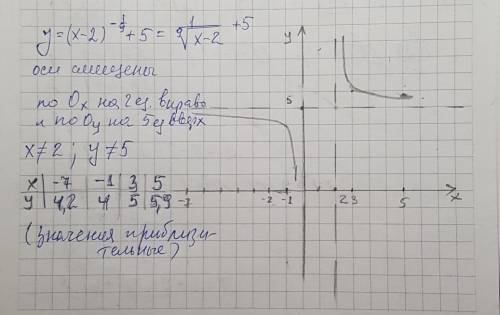 y=(x-2)^{-1/9}+5 = \frac{1}{\sqrt[9]{x-2}} +5
оси смещены
по Ox на 2 ед. вправо
и по Oy на 5 ед вверх
x≠2 ; y≠5
x | -7 | -1 | 3 | 5
y | 4,2 | 4 | 5 | 5,9
(значения приблизи-
тельные)
y
5
-7 -2 -1 2 3 5 x